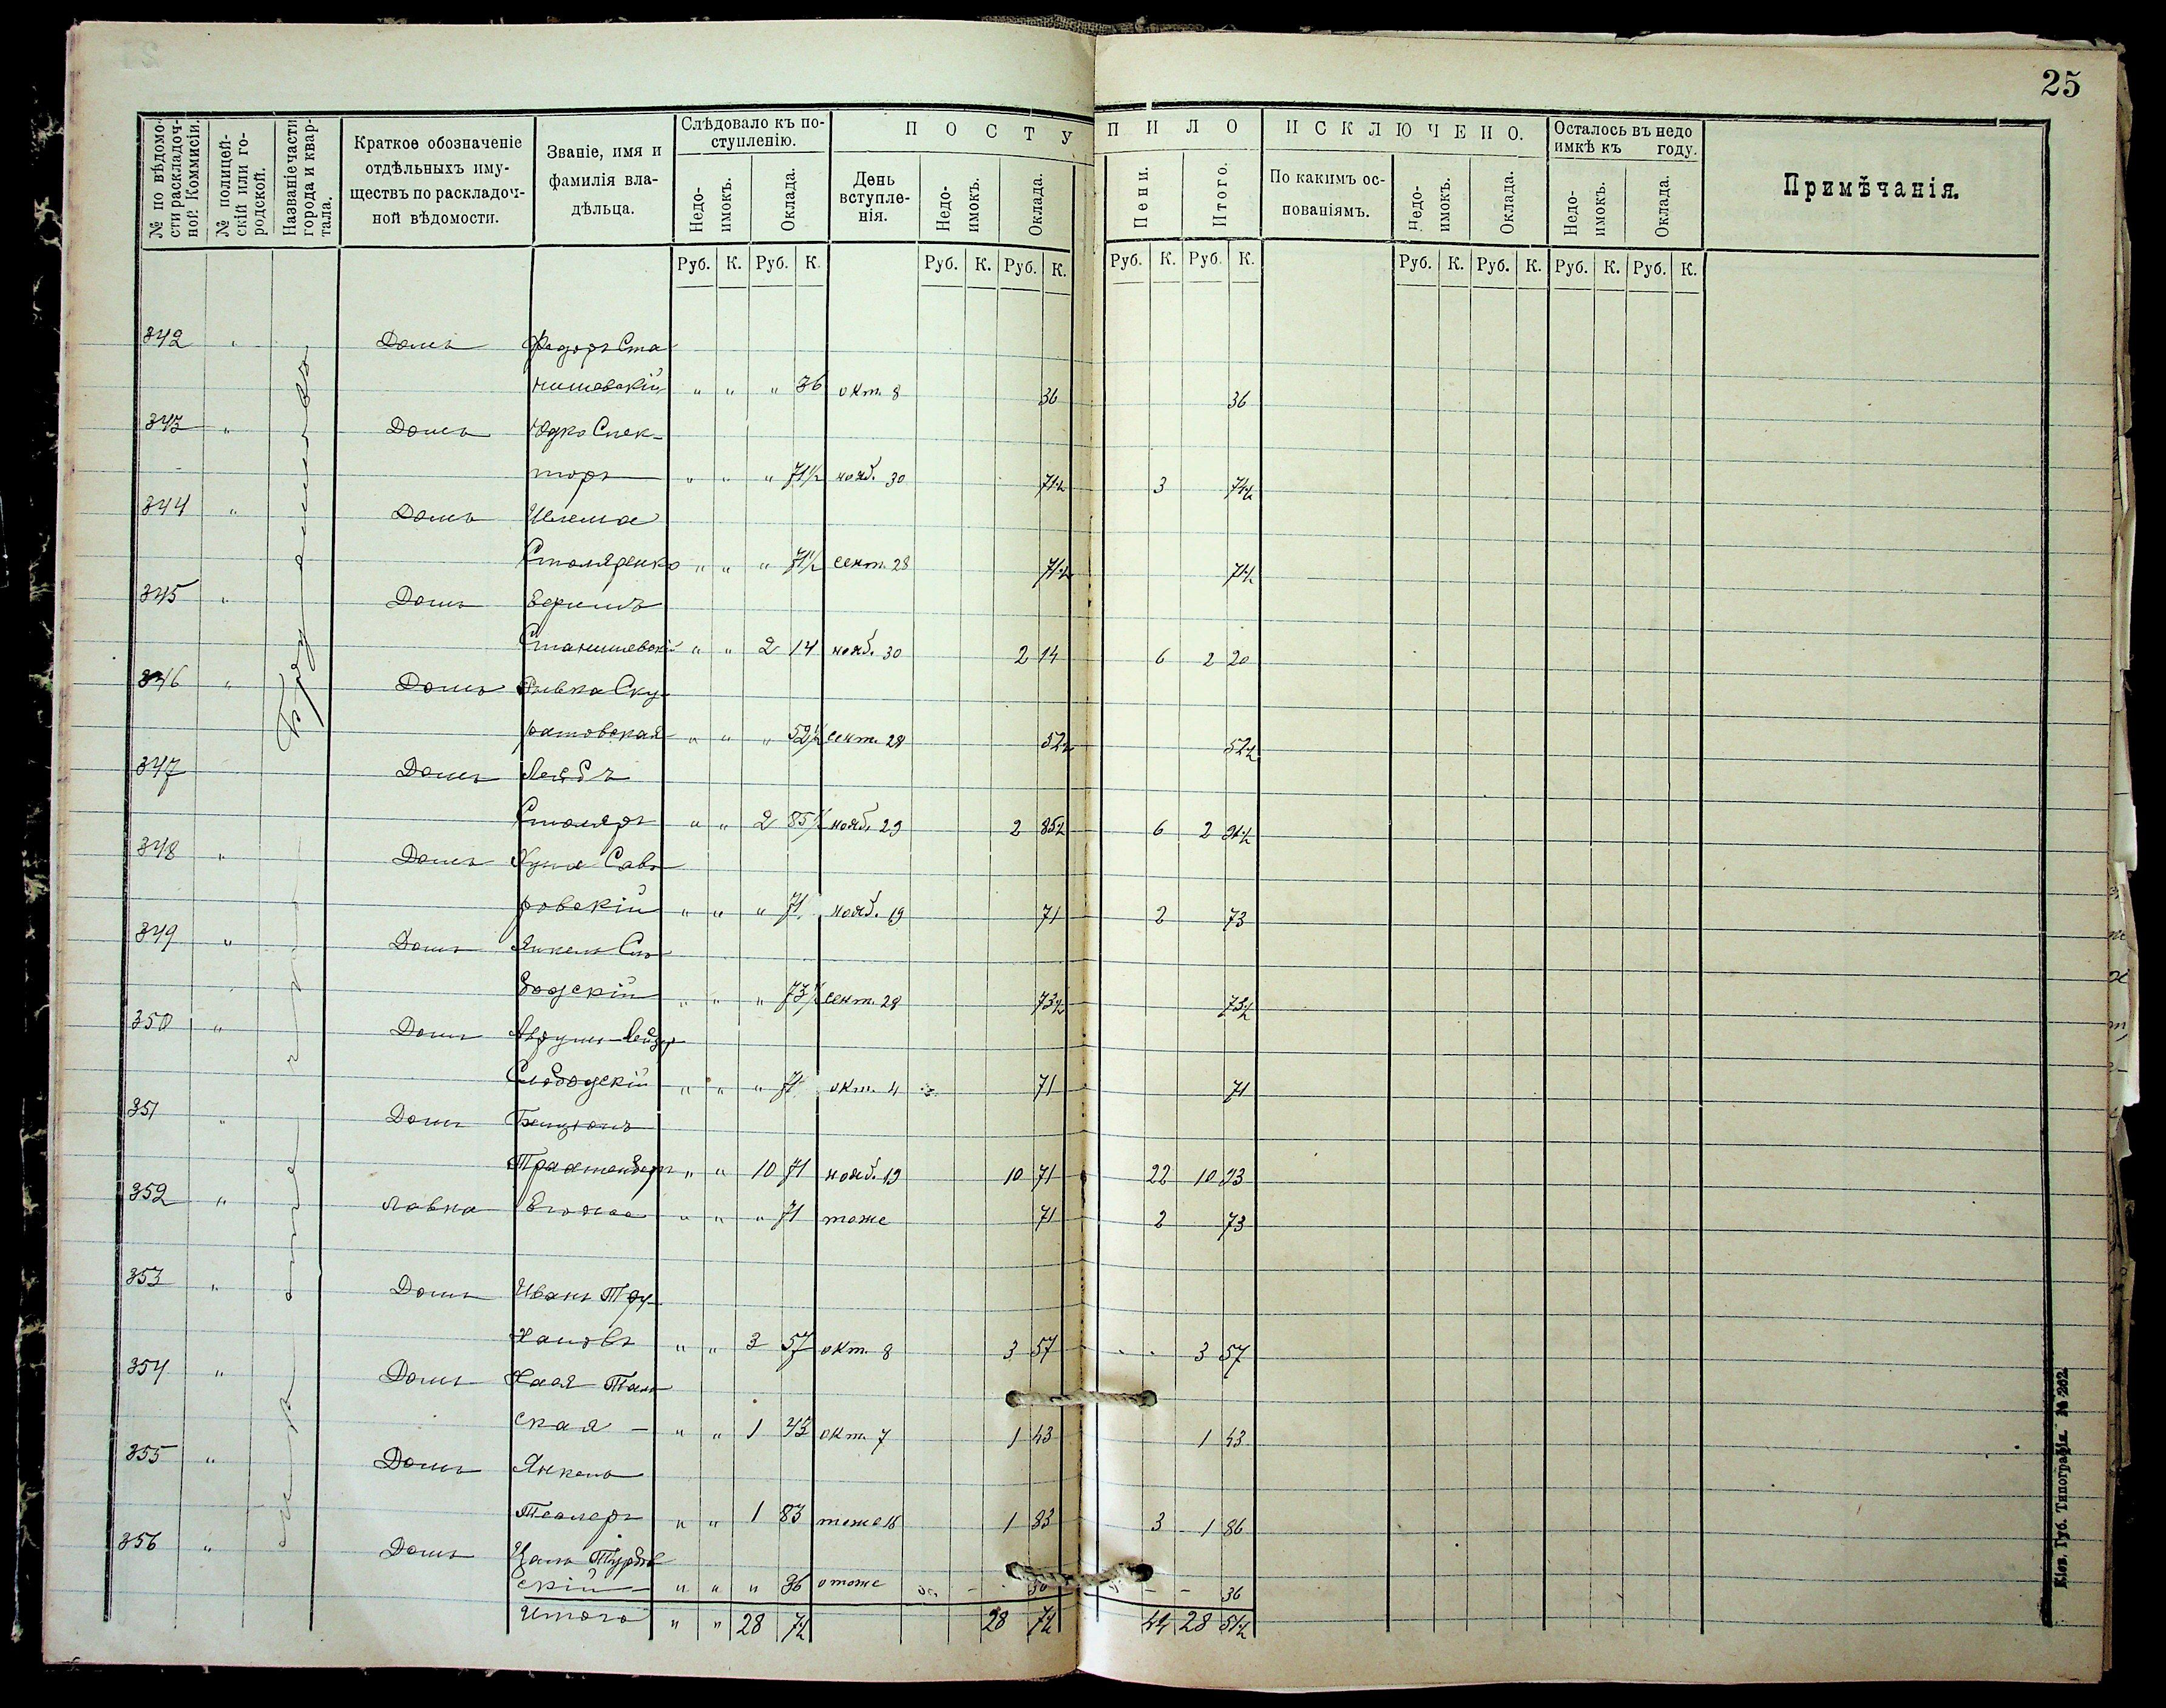 25
№ по вѣдомо-
сти раскладоч-
ной Коммисіи.
№ полицей-
скій или го-
родской.
Названіе части
города и квар-
тала.
Краткое обозначеніе
отдѣльныхъ иму-
ществъ по раскладоч-
ной вѣдомости.
Званіе, имя и
фамилія вла-
дѣльца.
Слѣдовало къ по-
ступленію.
Недо-
имокъ.
Оклада.
ПОСТУПИЛО
День
вступле-
нія.
Недо-
имокъ.
Оклада.
Пени.
Итого.
ИСКЛЮЧЕНО.
По какимъ ос-
нованіямъ.
Недо-
имокъ.
Оклада.
Осталось въ недо
имкѣ къ году.
Недо-
имокъ.
Оклада.
Примѣчанія.
Руб. К. Руб. К. Руб. К. Руб. К. Руб. К. Руб. К. Руб. К. Руб. К. Руб. К. Руб. К.
342 " Домъ Федоръ Ста-
нишевскій " " " 36 окт. 8 36 36
343 " Домъ Юдко Спек-
торъ " " " 71½ нояб. 30 71½ 3 74½
344 " Домъ Шлема
Столяренко " " " 71½ сент. 28 71½ 71½
345 " Домъ
Станишевскій " " 2 14 нояб. 30 2 14 6 2 20
346 " Домъ Ривка Ску-
ратовская " " " 52½ сент. 28 52½ 52½
347 Домъ Лейбъ
Столяръ " " 2 85½ нояб. 29 2 85½ 6 2 91½
348 " Домъ
ровскій " " " 71 нояб. 19 71 2 73
349 " Домъ Янкель Сло-
бодскій " " " 73½ сент. 28 73½ 73½
350 " Домъ
Слободскій " " " 71 окт. 4 71 71
351 " Домъ Бенціонъ
Трахтенберъ " " 10 71 нояб. 19 10 71 22 10 93
352 " Лавка Егожъ " " " 71 тоже 71 2 73
353 " Домъ Иванъ Тру-
хановъ " " 3 57 окт. 8 3 57 " " 3 57
354 " Домъ Хая Таль-
ская " " 1 43 окт. 7 1 43 1 43
355 " Домъ Янкель
Тесляръ " " 1 83 тоже 16 1 83 3 1 86
356 " Домъ
скій " " " 36 тоже 36 36
Итого " " 28 7½ 28 7½ 44 28 51½
Кіев. Губ. Типографія № 202